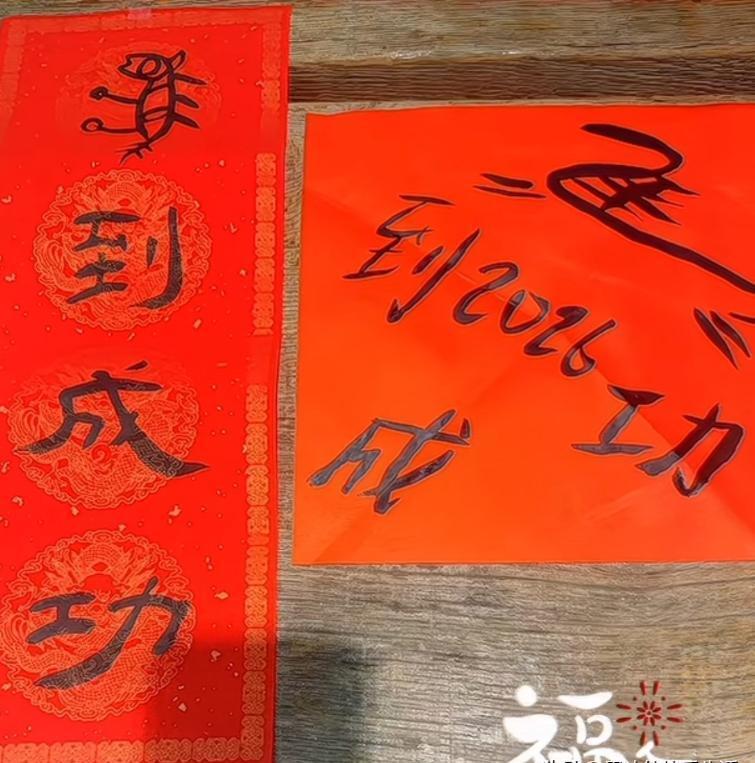 到
成
功
到2026
成
工力
福